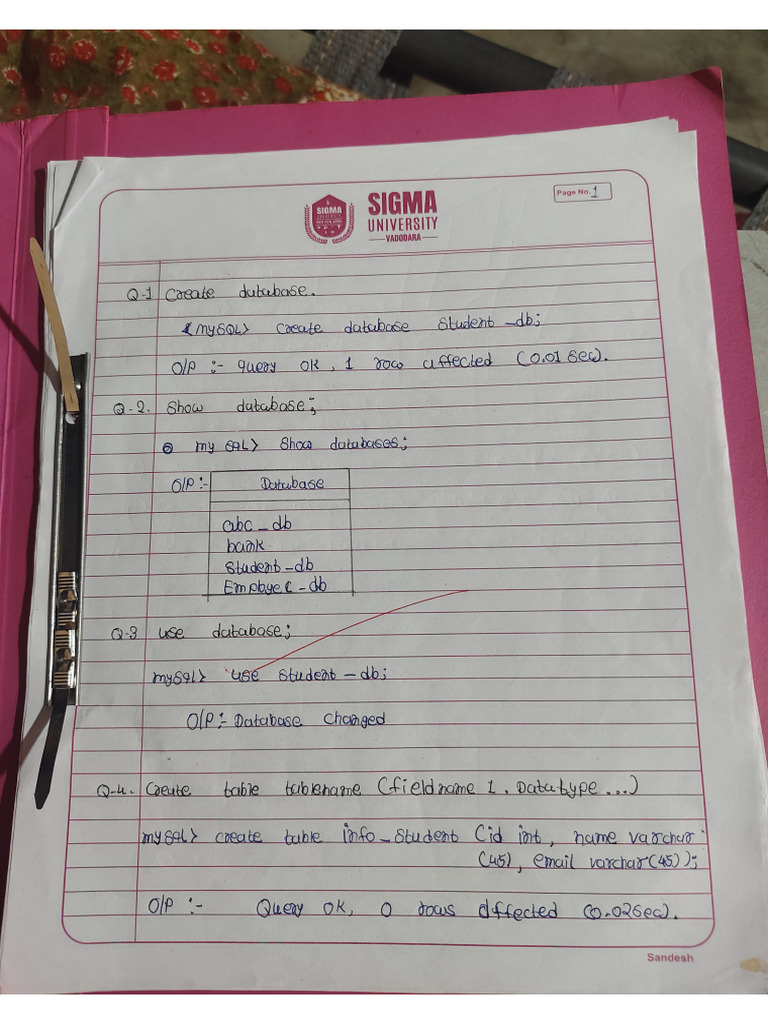 SIGMA
UNIVERSITY
VADODARA
Page No. 1
Q-1 Create database.
mySQL> create database student-db;
O/P :- query ok, 1 row affected (0.01 sec).
Q-2. Show database;
my sql> Show databases;
O/P :- Database
abc_db
bank
student-db
Employee-db
Q-3 use database;
mysql> use student-db;
O/P :- Database changed
Q-4. Create table tablename (fieldname 1. Datatype ...)
mysql> create table info_student (id int, name varchar
(45), email varchar(45));
O/P :- Query ok, 0 rows affected (0.02 sec).
Sandesh